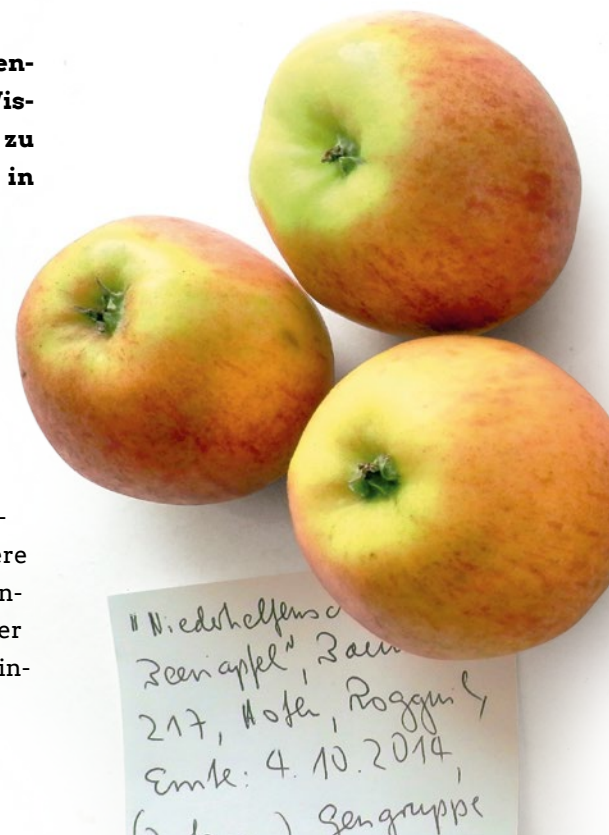 en-
Vis-
zu
in
-
ere
n-
er
in-
"Niederhelfens
Beeriapfel", Baum
217, Hofen, Roggwil,
Ernte: 4.10.2014,
Gengruppe